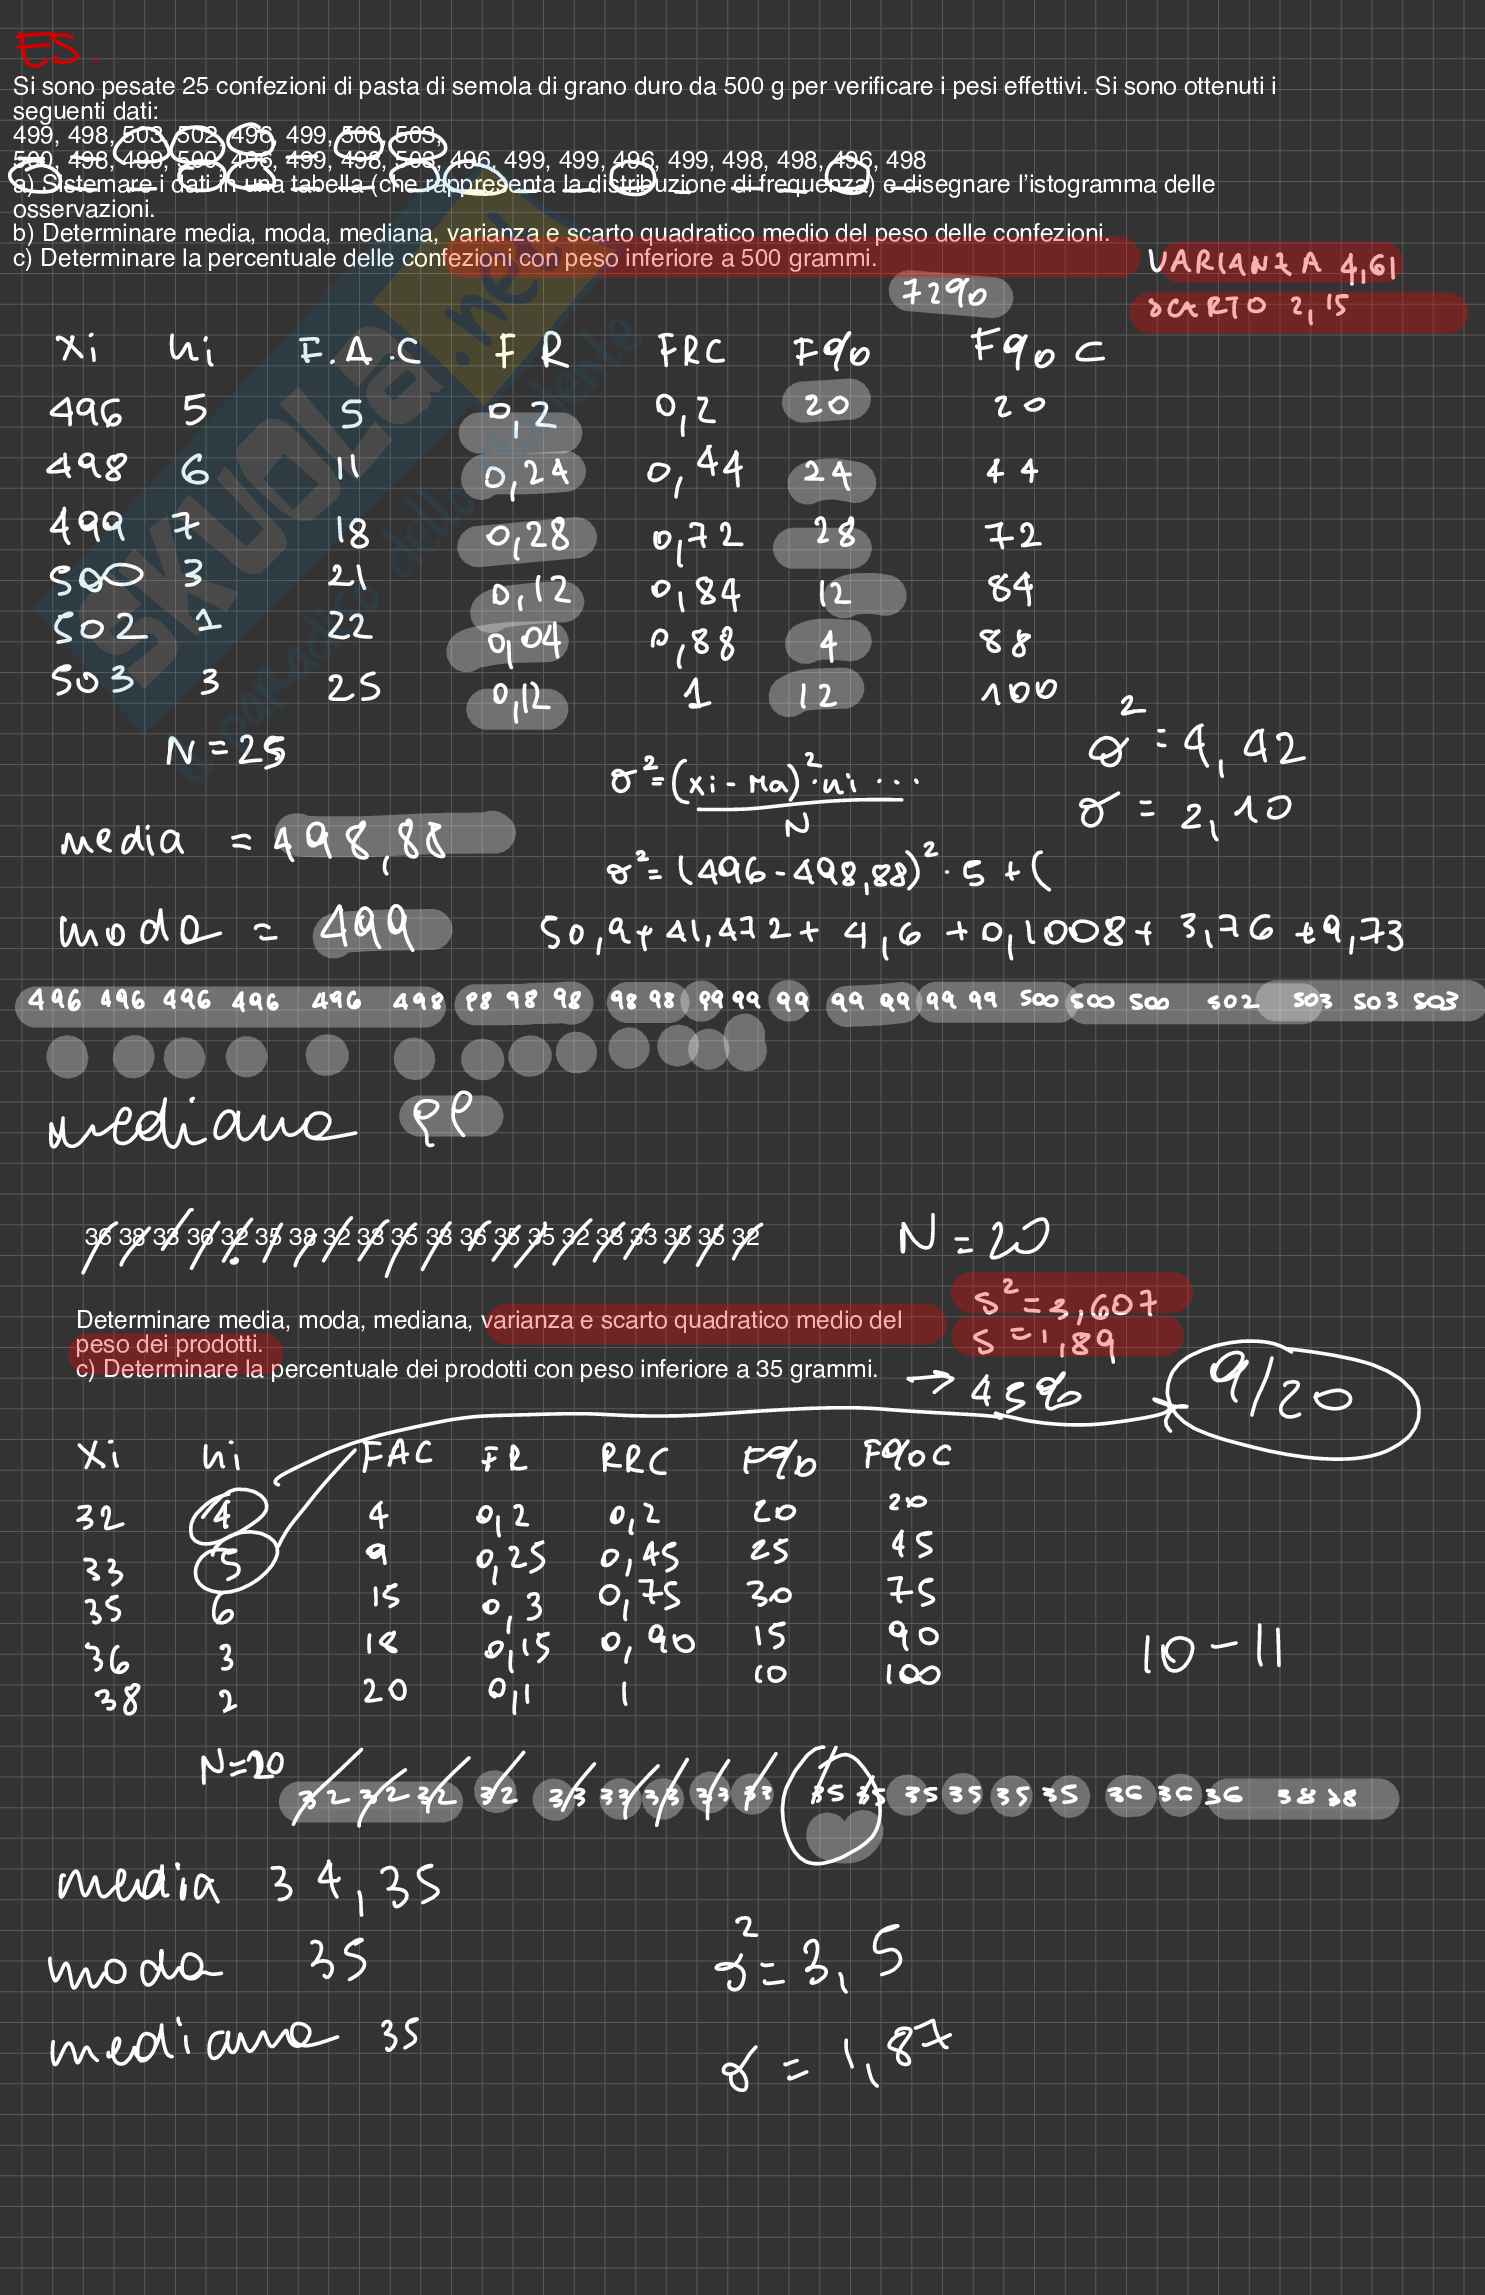 ES.
Si sono pesate 25 confezioni di pasta di semola di grano duro da 500 g per verificare i pesi effettivi. Si sono ottenuti i
seguenti dati:
499, 498, 503, 502, 496, 499, 500, 503,
500, 498, 499, 500, 496, 499, 498, 503, 496, 499, 499, 496, 499, 498, 498, 496, 498
a) Sistemare i dati in una tabella (che rappresenta la distribuzione di frequenza) e disegnare l'istogramma delle
osservazioni.
b) Determinare media, moda, mediana, varianza e scarto quadratico medio del peso delle confezioni.
c) Determinare la percentuale delle confezioni con peso inferiore a 500 grammi.
VARIANZA 4,61
72%
SCARTO 2,15
xi ni F.A.C FR FRC F% F%C
496 5 5 0,2 0,2 20 20
498 6 11 0,24 0,44 24 44
499 7 18 0,28 0,72 28 72
500 3 21 0,12 0,84 12 84
502 1 22 0,04 0,88 4 88
503 3 25 0,12 1 12 100
N = 25
σ² = 4,42
σ² = (xi - Ma)² · ni ...
N
σ = 2,10
media = 498,88
σ² = (496 - 498,88)² · 5 + (
moda = 499
50,9 + 41,472 + 4,6 + 0,1008 + 3,76 + 9,73
496 496 496 496 496 498 98 98 98 98 98 99 99 99 99 99 99 99 500 500 500 502 503 503 503
mediana 99
36 38 33 36 32 35 38 32 33 35 33 36 35 35 32 33 33 35 35 32
N = 20
s² = 3,607
Determinare media, moda, mediana, varianza e scarto quadratico medio del
peso dei prodotti.
s = 1,89
c) Determinare la percentuale dei prodotti con peso inferiore a 35 grammi.
→ 45%
9/20
xi ni FAC FR RRC F% F%C
32 4 4 0,2 0,2 20 20
33 5 9 0,25 0,45 25 45
35 6 15 0,3 0,75 30 75
36 3 18 0,15 0,90 15 90
38 2 20 0,1 1 10 100
10 - 11
N=20
32 32 32 32 33 33 33 33 33 35 35 35 35 35 35 36 36 36 38 38
media 34,35
moda 35
σ² = 3,5
mediana 35
σ = 1,87
SKUOLA.net